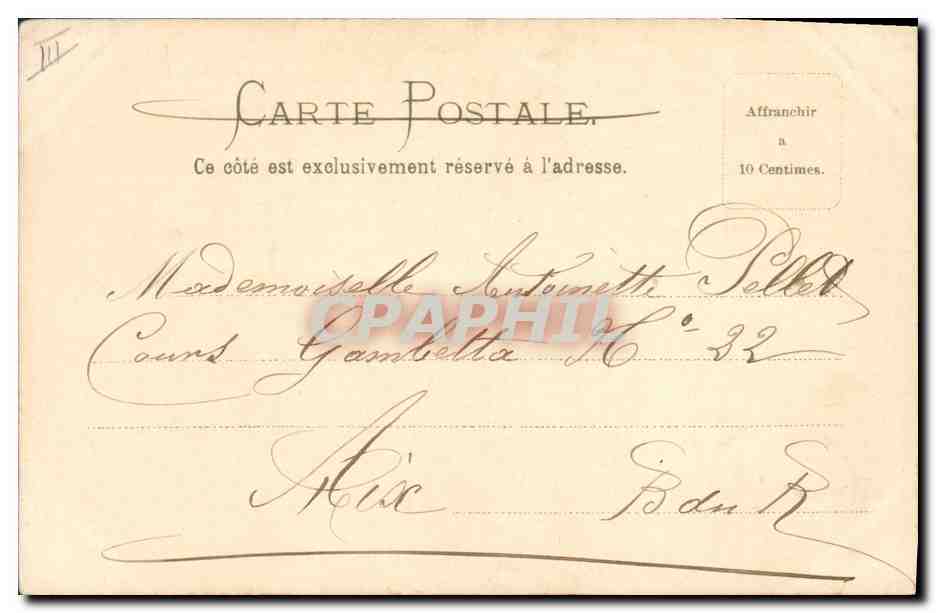 III
CARTE POSTALE.
Ce côté est exclusivement réservé à l'adresse.
Affranchir
a
10 Centimes.
Mademoiselle Antoinette Pellet
Cours Gambetta N° 22
Aix B du R
CPAPHIL